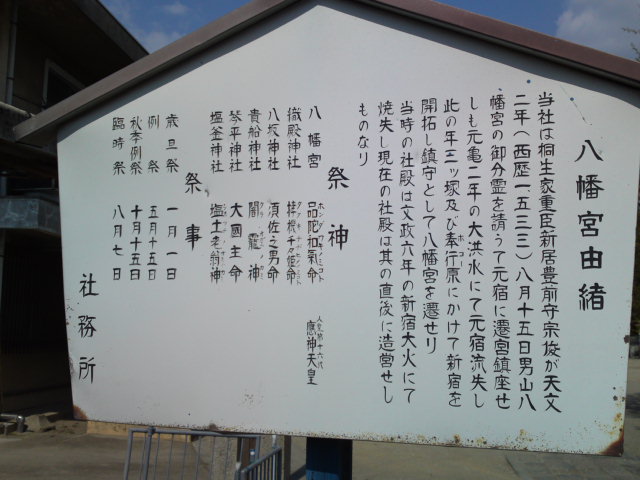 八幡宮由緒
当社は桐生家重臣新居豊前守宗俊が天文
二年(西歴一五三三)八月十五日男山八
幡宮の御分霊を請うて元宿に遷宮鎮座せ
しも元亀二年の大洪水にて元宿流失し
此の年三ッ塚及び奉行原にかけて新宿を
開拓し鎮守として八幡宮を遷せり
当時の社殿は文政六年の新宿大火にて
焼失し現在の社殿は其の直後に造営せし
ものなり
祭神
八幡宮 品陀和氣命 人皇第十六代 應神天皇
機殿神社 栲機千々姫命
八坂神社 須佐之男命
貴船神社 闇龗神
琴平神社 大國主命
塩釜神社 塩土老翁神
祭事
歳旦祭 一月一日
例祭 五月十五日
秋季例祭 十月十五日
臨時祭 八月七日
社務所